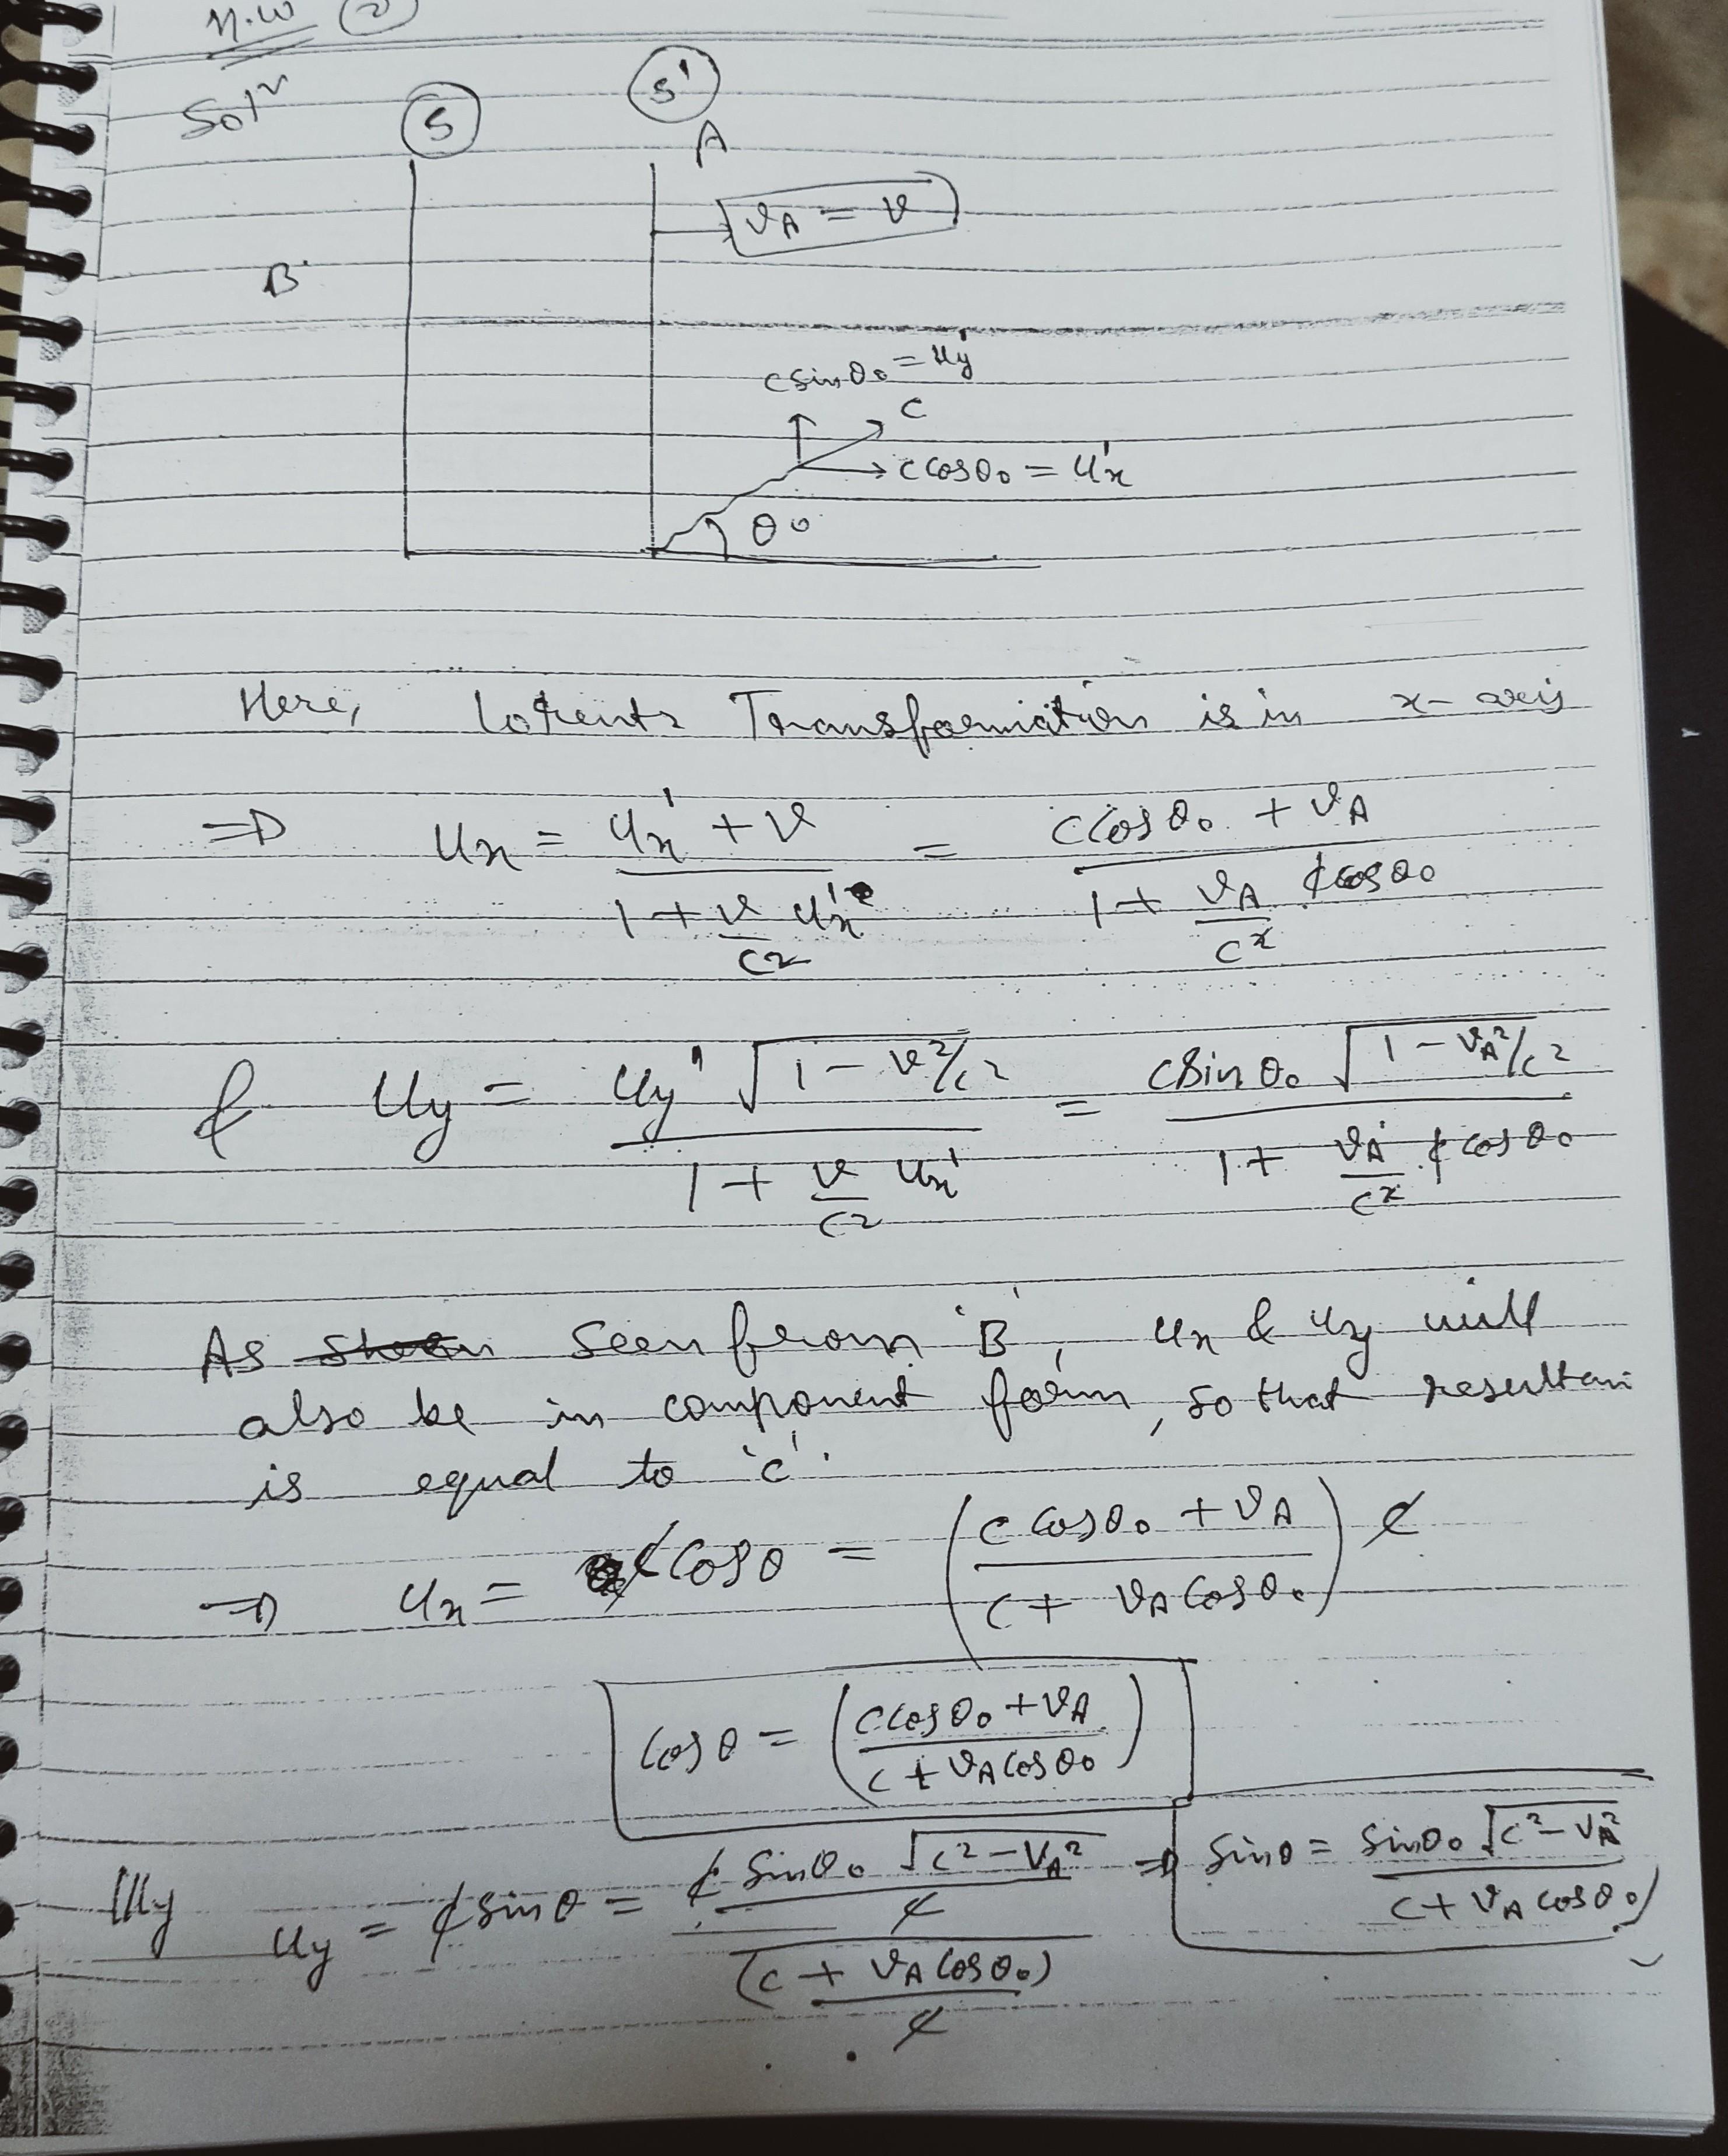 H.W (2)
Solⁿ
S
S'
A
v_A = v
B
c sinθ₀ = u'y
c
c cosθ₀ = u'x
θ₀
Here, lorentz Transformation is in x-axis
⇒ ux = (u'x + v) / (1 + (v/c²) u'x) = (c cosθ₀ + v_A) / (1 + (v_A/c²) c cosθ₀)
& uy = (uy' √(1 - v²/c²)) / (1 + (v/c²) ux') = (c sinθ₀ √(1 - v_A²/c²)) / (1 + (v_A/c²) · c cosθ₀)
As seen from 'B', ux & uy will
also be in component form, so that resultan
is equal to 'c'.
⇒ ux = c cosθ = ((c cosθ₀ + v_A) / (c + v_A cosθ₀)) c
cosθ = ((c cosθ₀ + v_A) / (c + v_A cosθ₀))
llly uy = c sinθ = (c sinθ₀ √(c² - v_A²) / c) / ((c + v_A cosθ₀) / c) ⇒ sinθ = (sinθ₀ √(c² - v_A²)) / (c + v_A cosθ₀)